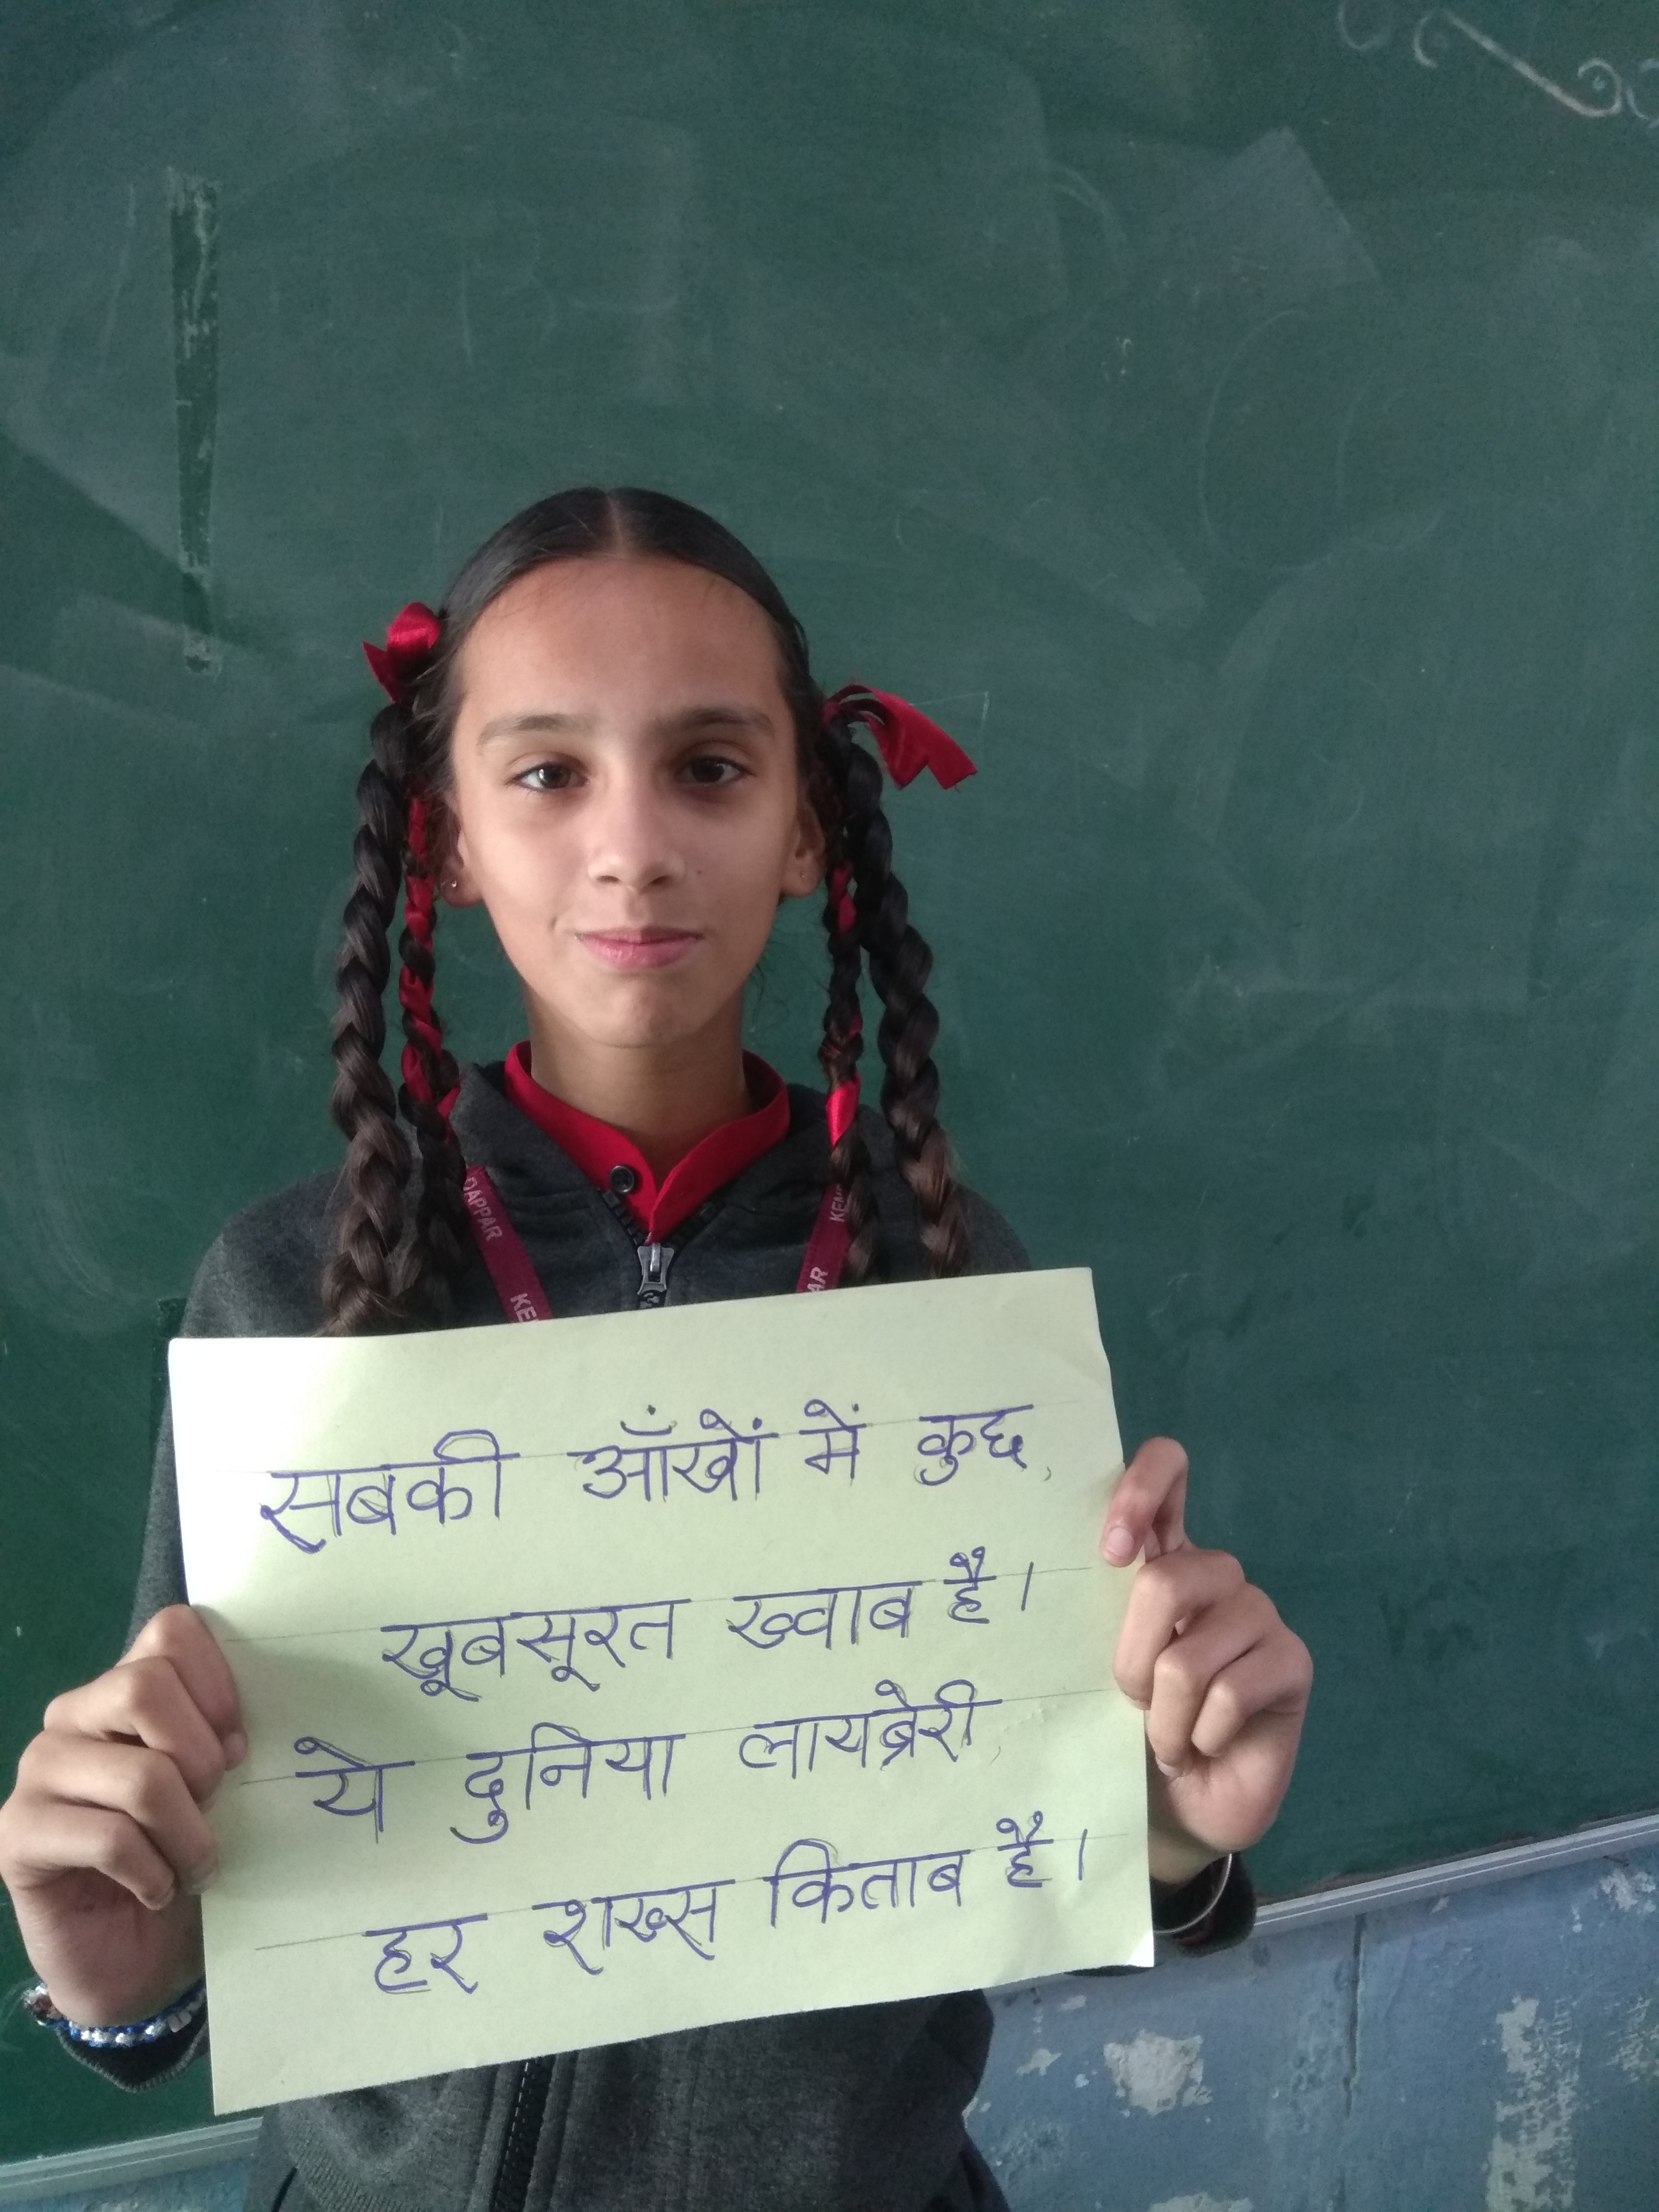 DAPPAR
KE
KEN
AR
सबकी आँखों में कुछ
खूबसूरत ख्वाब है।
ये दुनिया लायब्रेरी,
हर शख्स किताब है।